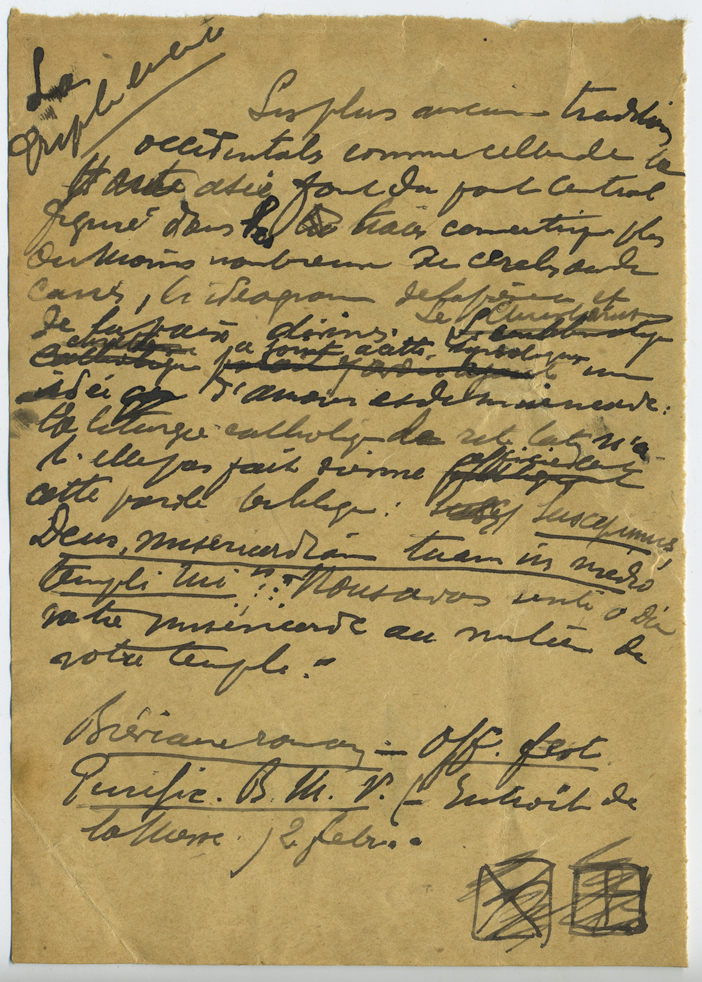 La
triple enceinte
Les plus anciennes traditions
occidentales comme celles de la
Haute Asie font du point Central
figuré dans les trois
ou moins nombreux de cercles ou de
carrés, l'idéogramme de la et
de la paix divine. Le Christianisme
a joint à cette un
idée d'amour et de miséricorde:
la liturgie catholique de rite latin n'a-
t-elle pas fait sienne
cette parole biblique: Suscepimus,
Deus, misericordiam tuam in medio
templi tui": "Nous avons senti ô Dieu
votre miséricorde au milieu de
votre temple."
Bréviaire romain — Off. fest.
Purific. B. M. V. (— Introït de
la Messe.) 2 febr..